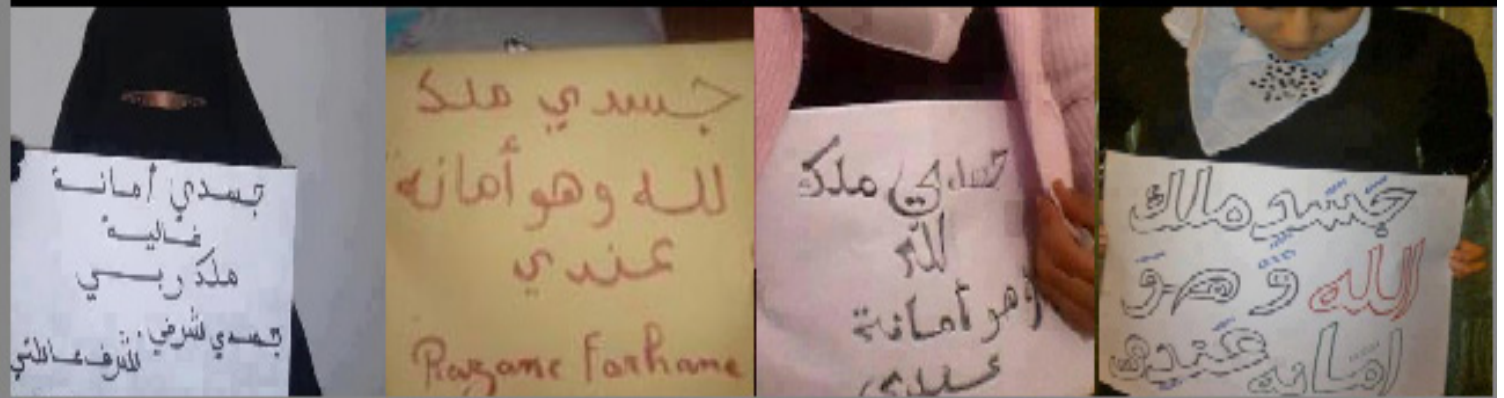 جسدي أمانة
غالية
ملك ربي
جسدي شرفي
شرف عائلتي
جسدي ملك
لله وهو أمانة
عندي
Razane Farhane
جسدي ملك
لله
وهو أمانة
عندي
جسد ملك
الله و هو
امانة عندي